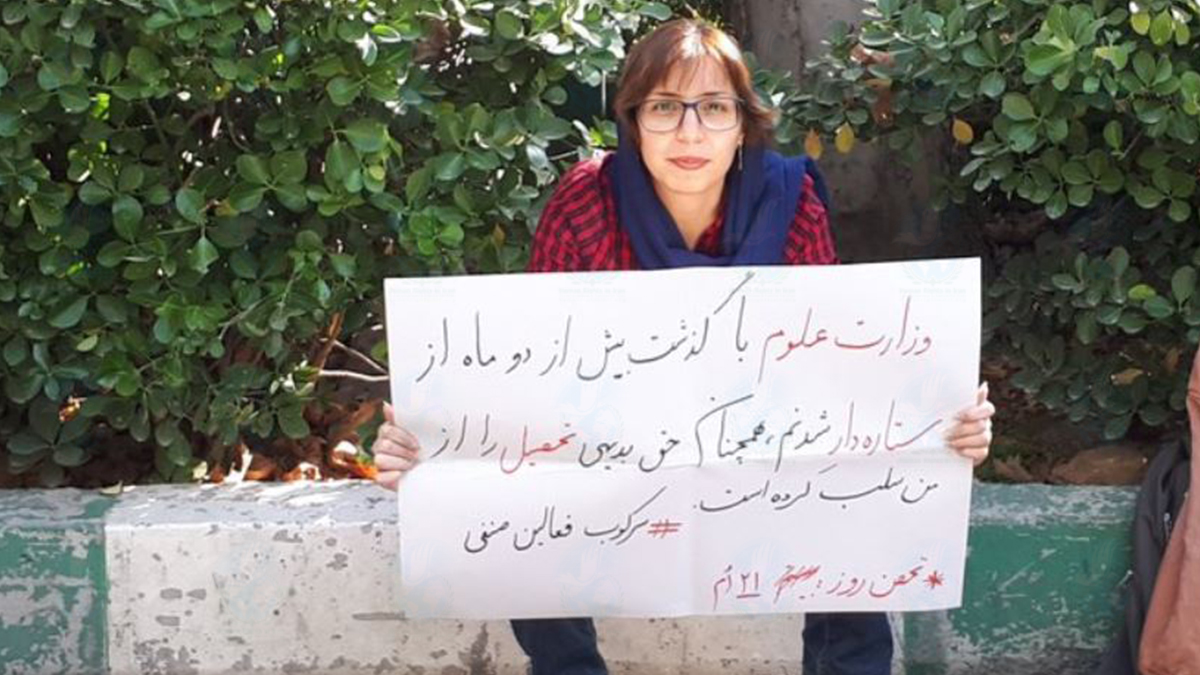 وزارت علوم با گذشت بیش از دو ماه از
ستاره‌دار شدنم، همچنان حق بدیهی تحصیل را از
من سلب کرده است.
#سرکوب فعالین صنفی
*تحصن روز: ۲۱ اُم